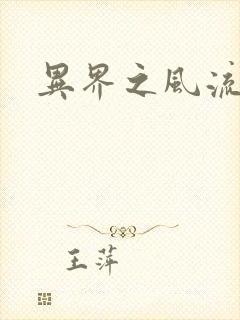 異界之風流
王萍